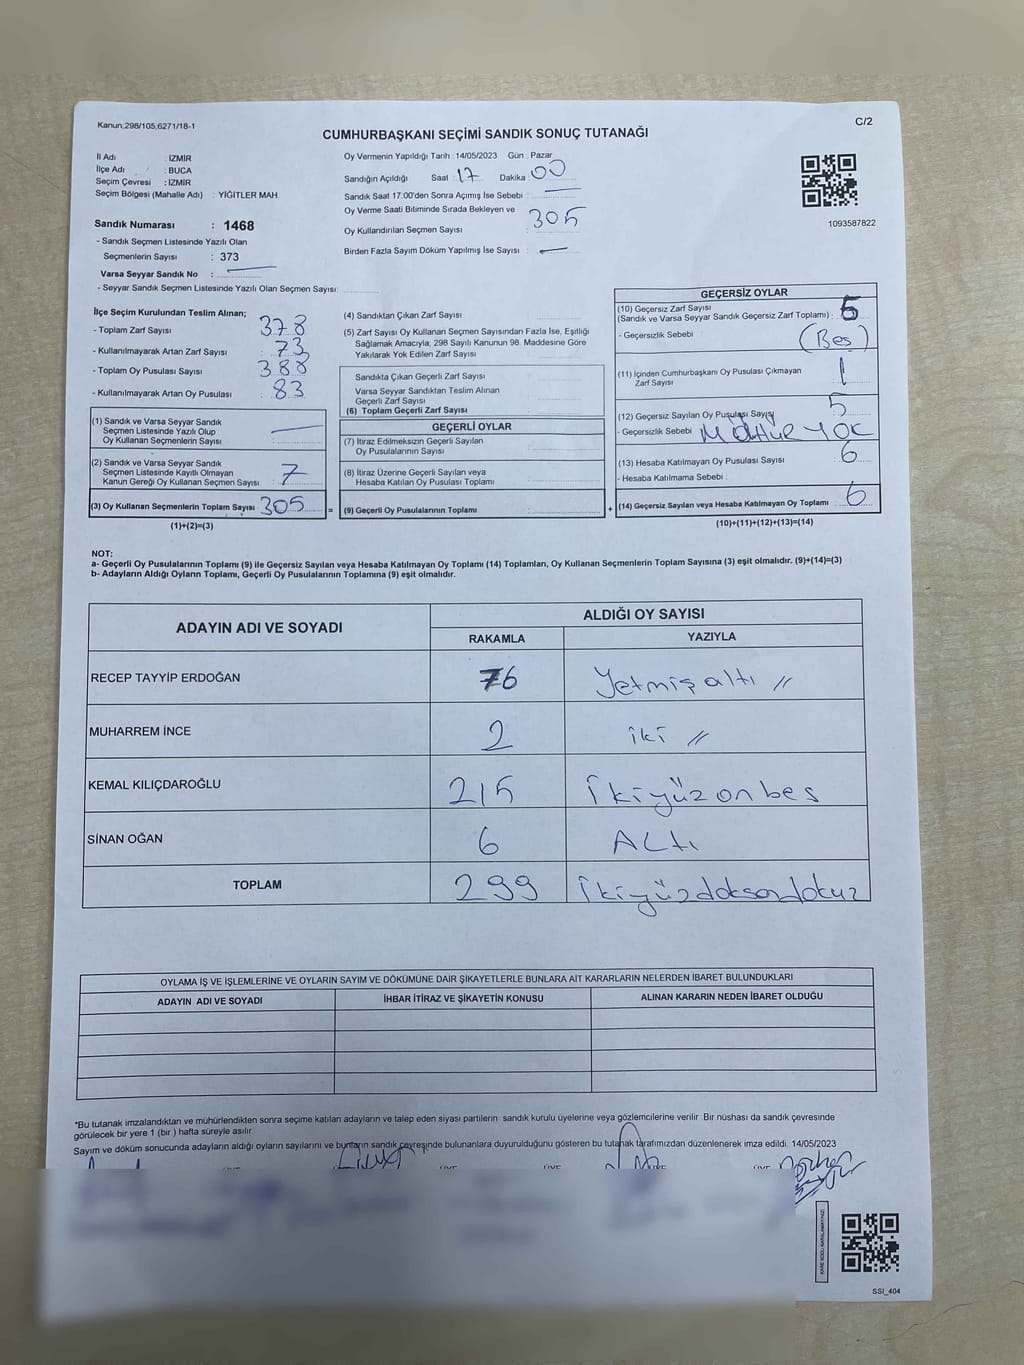 Kanun,298/105,6271/18-1
C/2
CUMHURBAŞKANI SEÇİMİ SANDIK SONUÇ TUTANAĞI
İl Adı : İZMİR
İlçe Adı : BUCA
Seçim Çevresi : İZMİR
Seçim Bölgesi (Mahalle Adı) : YİĞİTLER MAH.
Sandık Numarası : 1468
- Sandık Seçmen Listesinde Yazılı Olan
Seçmenlerin Sayısı : 373
Varsa Seyyar Sandık No :
- Seyyar Sandık Seçmen Listesinde Yazılı Olan Seçmen Sayısı:
Oy Vermenin Yapıldığı Tarih :14/05/2023 Gün : Pazar
Sandığın Açıldığı Saat 17 Dakika 00
Sandık Saat 17.00'den Sonra Açımış İse Sebebi :
Oy Verme Saati Bitiminde Sırada Bekleyen ve
Oy Kullandırılan Seçmen Sayısı : 305
Birden Fazla Sayım Döküm Yapılmış İse Sayısı : —
1093587822
İlçe Seçim Kurulundan Teslim Alınan;
- Toplam Zarf Sayısı : 378
- Kullanılmayarak Artan Zarf Sayısı : 73
- Toplam Oy Pusulası Sayısı : 388
- Kullanılmayarak Artan Oy Pusulası : 83
(1) Sandık ve Varsa Seyyar Sandık
Seçmen Listesinde Yazılı Olup
Oy Kullanan Seçmenlerin Sayısı :
(2) Sandık ve Varsa Seyyar Sandık
Seçmen Listesinde Kayıtlı Olmayan
Kanun Gereği Oy Kullanan Seçmen Sayısı : 7
(3) Oy Kullanan Seçmenlerin Toplam Sayısı 305
(1)+(2)=(3)
(4) Sandıktan Çıkan Zarf Sayısı :
(5) Zarf Sayısı Oy Kullanan Seçmen Sayısından Fazla İse, Eşitliği
Sağlamak Amacıyla, 298 Sayılı Kanunun 98. Maddesine Göre
Yakılarak Yok Edilen Zarf Sayısı :
Sandıkta Çıkan Geçerli Zarf Sayısı
Varsa Seyyar Sandıktan Teslim Alınan
Geçerli Zarf Sayısı
(6) Toplam Geçerli Zarf Sayısı
GEÇERLİ OYLAR
(7) İtiraz Edilmeksizin Geçerli Sayılan
Oy Pusulalarının Sayısı
(8) İtiraz Üzerine Geçerli Sayılan veya
Hesaba Katılan Oy Pusulası Toplamı
= (9) Geçerli Oy Pusulalarının Toplamı +
GEÇERSİZ OYLAR
(10) Geçersiz Zarf Sayısı
(Sandık ve Varsa Seyyar Sandık Geçersiz Zarf Toplamı) : 5
- Geçersizlik Sebebi : (Beş)
(11) İçinden Cumhurbaşkanı Oy Pusulası Çıkmayan
Zarf Sayısı : 1
(12) Geçersiz Sayılan Oy Pusulası Sayısı 5
- Geçersizlik Sebebi MÜHÜR YOK
(13) Hesaba Katılmayan Oy Pusulası Sayısı : 6
- Hesaba Katılmama Sebebi :
(14) Geçersiz Sayılan veya Hesaba Katılmayan Oy Toplamı 6
(10)+(11)+(12)+(13)=(14)
NOT:
a- Geçerli Oy Pusulalarının Toplamı (9) ile Geçersiz Sayılan veya Hesaba Katılmayan Oy Toplamı (14) Toplamları, Oy Kullanan Seçmenlerin Toplam Sayısına (3) eşit olmalıdır. (9)+(14)=(3)
b- Adayların Aldığı Oyların Toplamı, Geçerli Oy Pusulalarının Toplamına (9) eşit olmalıdır.
ADAYIN ADI VE SOYADI ALDIĞI OY SAYISI
RAKAMLA YAZIYLA
RECEP TAYYİP ERDOĞAN 76 Yetmiş altı //
MUHARREM İNCE 2 iki //
KEMAL KILIÇDAROĞLU 215 ikiyüz on beş
SİNAN OĞAN 6 ALtı
TOPLAM 299 ikiyüzdoksandokuz
OYLAMA İŞ VE İŞLEMLERİNE VE OYLARIN SAYIM VE DÖKÜMÜNE DAİR ŞİKAYETLERLE BUNLARA AİT KARARLARIN NELERDEN İBARET BULUNDUKLARI
ADAYIN ADI VE SOYADI İHBAR İTİRAZ VE ŞİKAYETİN KONUSU ALINAN KARARIN NEDEN İBARET OLDUĞU
*Bu tutanak imzalandıktan ve mühürlendikten sonra seçime katılan adayların ve talep eden siyasi partilerin sandık kurulu üyelerine veya gözlemcilerine verilir. Bir nüshası da sandık çevresinde
görülecek bir yere 1 (bir ) hafta süreyle asılır.
Sayım ve döküm sonucunda adayların aldığı oyların sayılarını ve bunların sandık çevresinde bulunanlara duyurulduğunu gösteren bu tutanak tarafımızdan düzenlenerek imza edildi. 14/05/2023
SSI_404